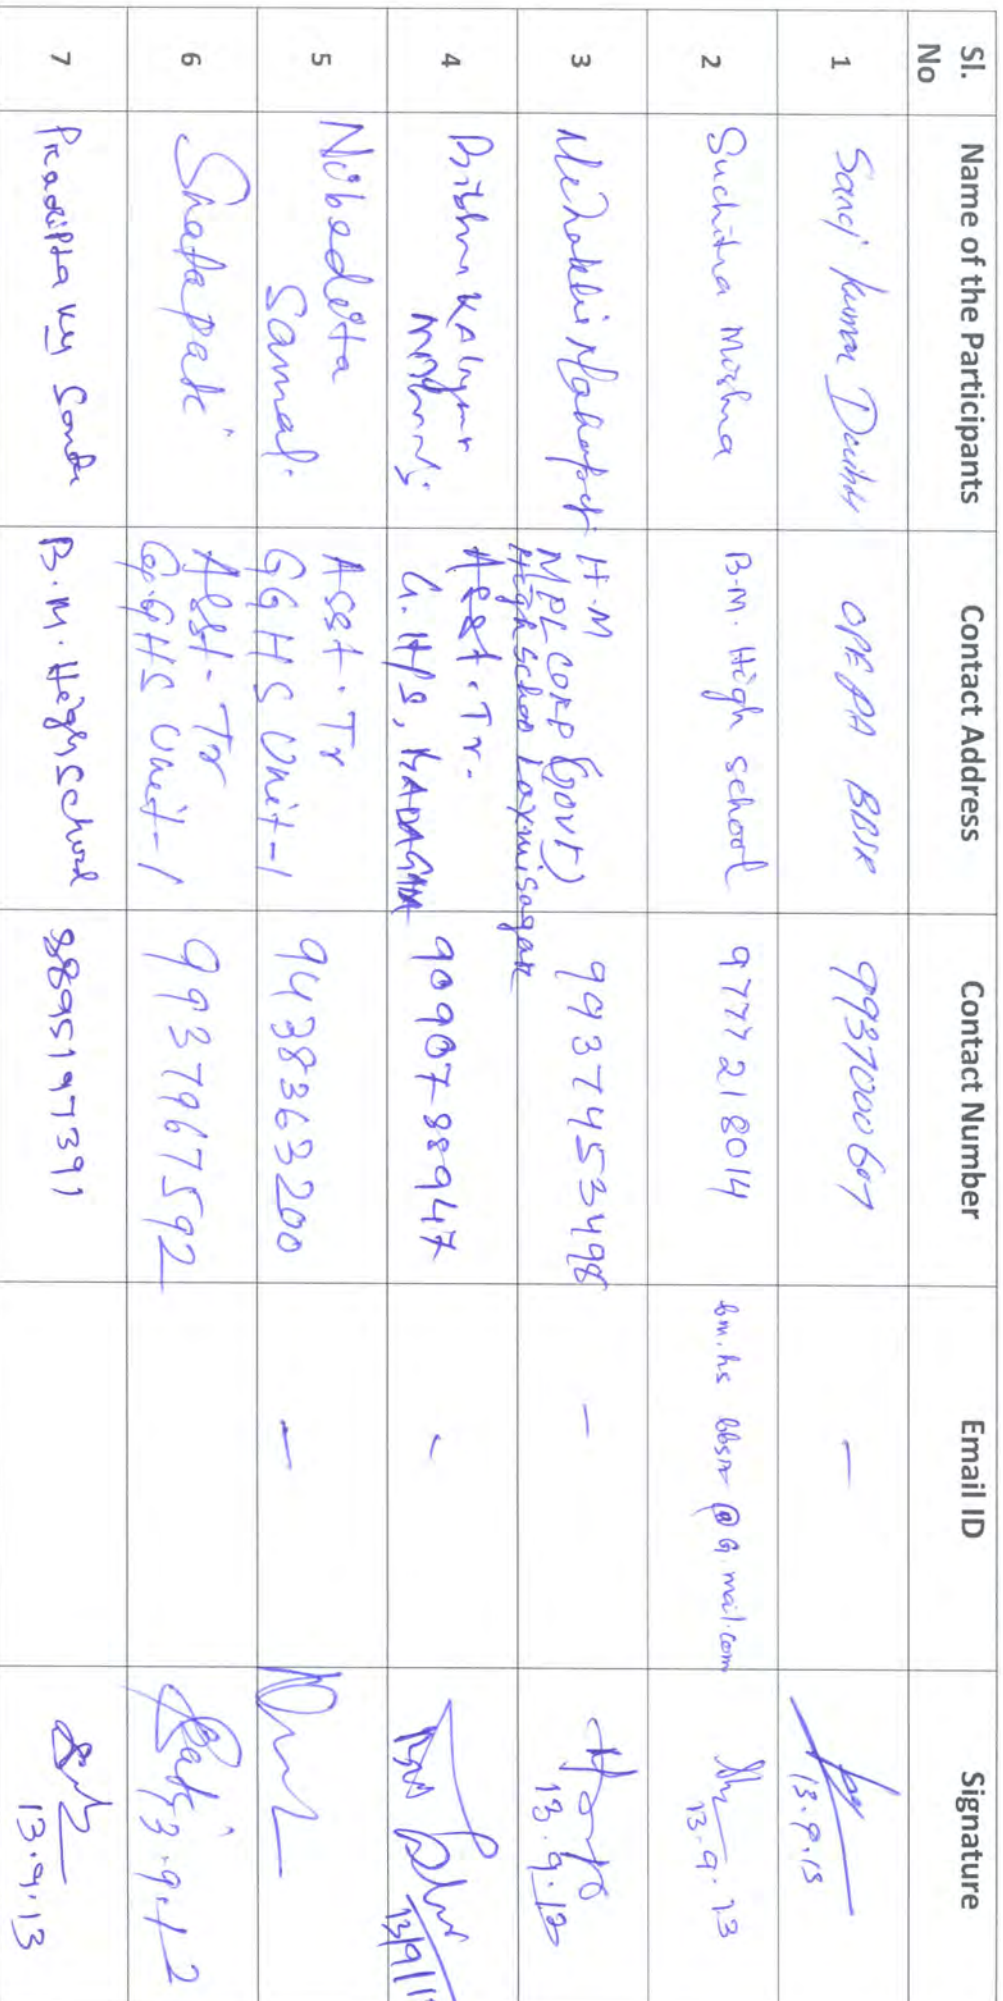 Sl. No
Name of the Participants
Contact Address
Contact Number
Email ID
Signature
1
Kumar
OPEPA BBSR
9937000607
—
2
Suchitra Mishra
B.M. High school
9777218014
bm.hs bbsr@g.mail.com
13.9.13
3
H.M
MPL CORP (Govt)
High School Laxmisagar
9937453498
—
13.9.12
4
Asst. Tr.
9090788947
-
5
Nibedita
Samal.
Asst. Tr
GGHS Unit-1
9438363200
—
6
Satapati
Asst. Tr
G.GHS Unit-1
9937967592
7
Pradipta
B.M. High School
8895197391
13.9.13